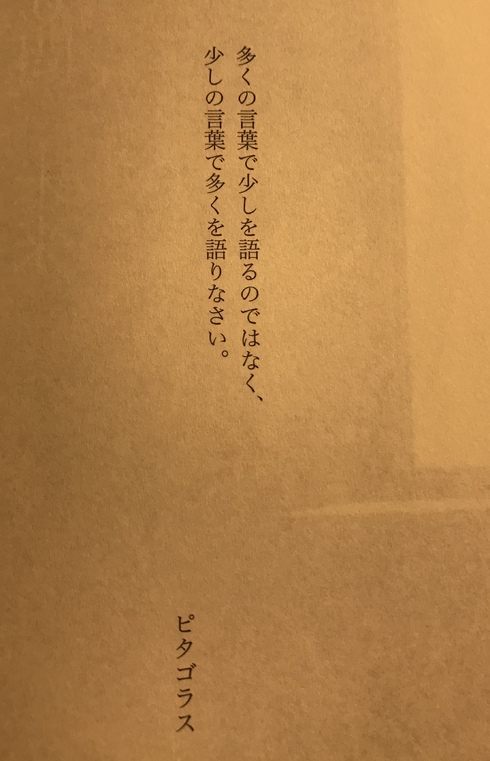 多くの言葉で少しを語るのではなく、
少しの言葉で多くを語りなさい。
ピタゴラス